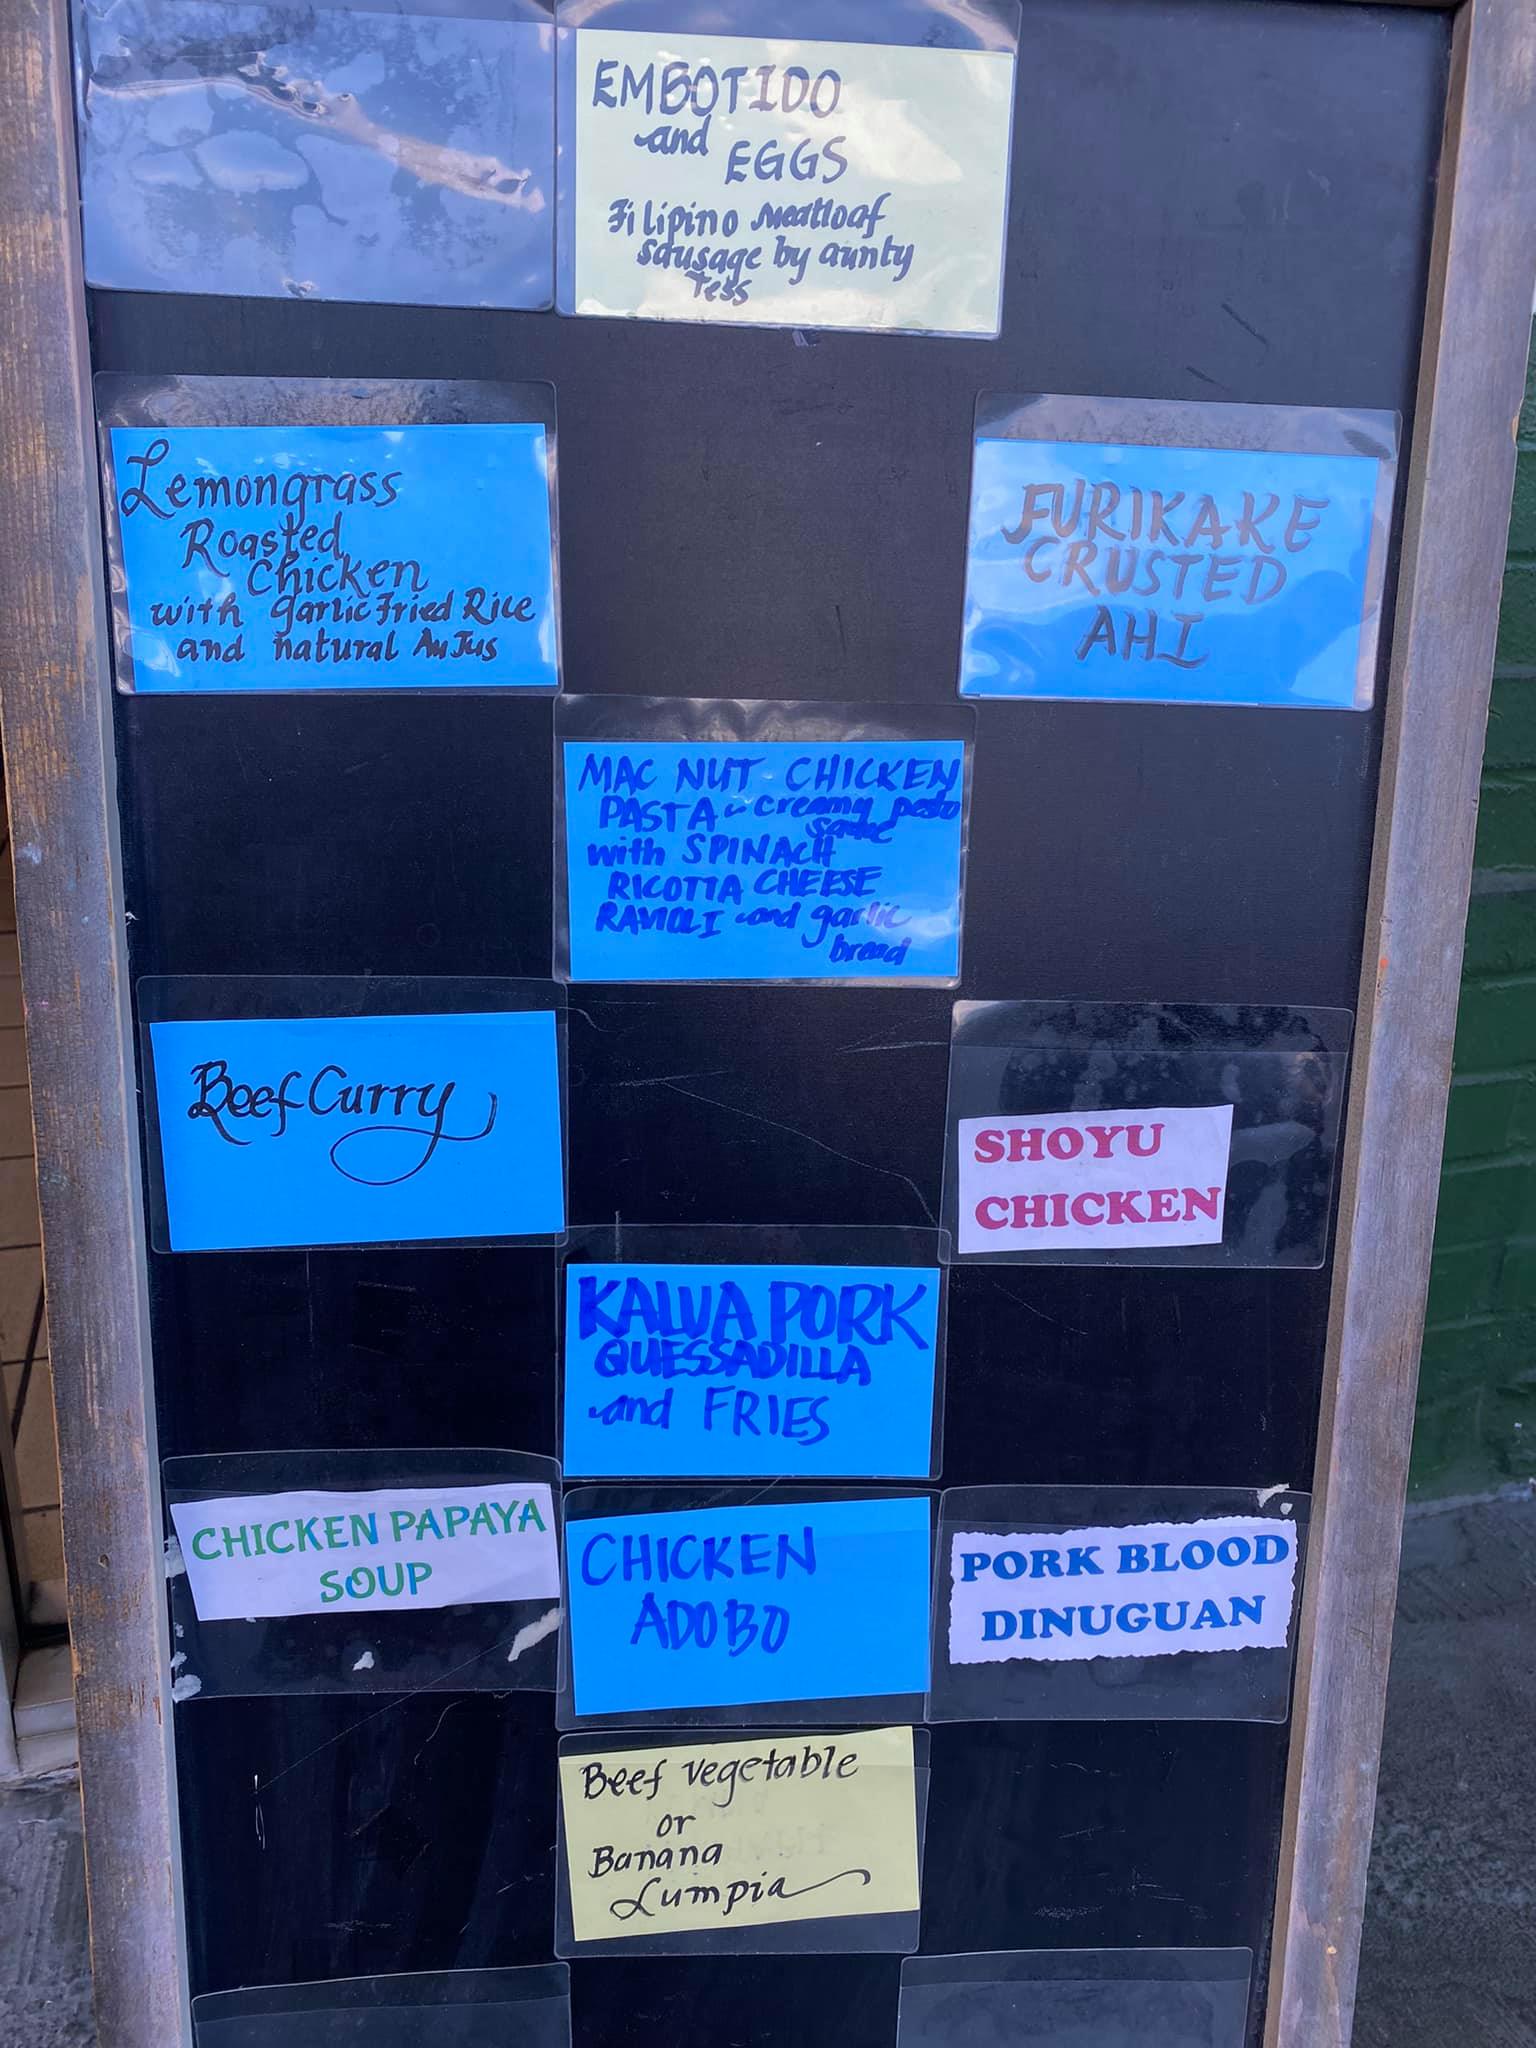 EMBOTIDO
and
EGGS
Filipino Meatloaf
sausage by aunty
Tess
Lemongrass
Roasted
Chicken
with garlic Fried Rice
and natural Au Jus
FURIKAKE
CRUSTED
AHI
MAC NUT CHICKEN
PASTA ~ creamy pesto
sauce
with SPINACH
RICOTTA CHEESE
RAVIOLI and garlic
bread
Beef Curry
SHOYU
CHICKEN
KALUA PORK
QUESSADILLA
and FRIES
CHICKEN PAPAYA
SOUP
CHICKEN
ADOBO
PORK BLOOD
DINUGUAN
Beef vegetable
or
Banana
Lumpia